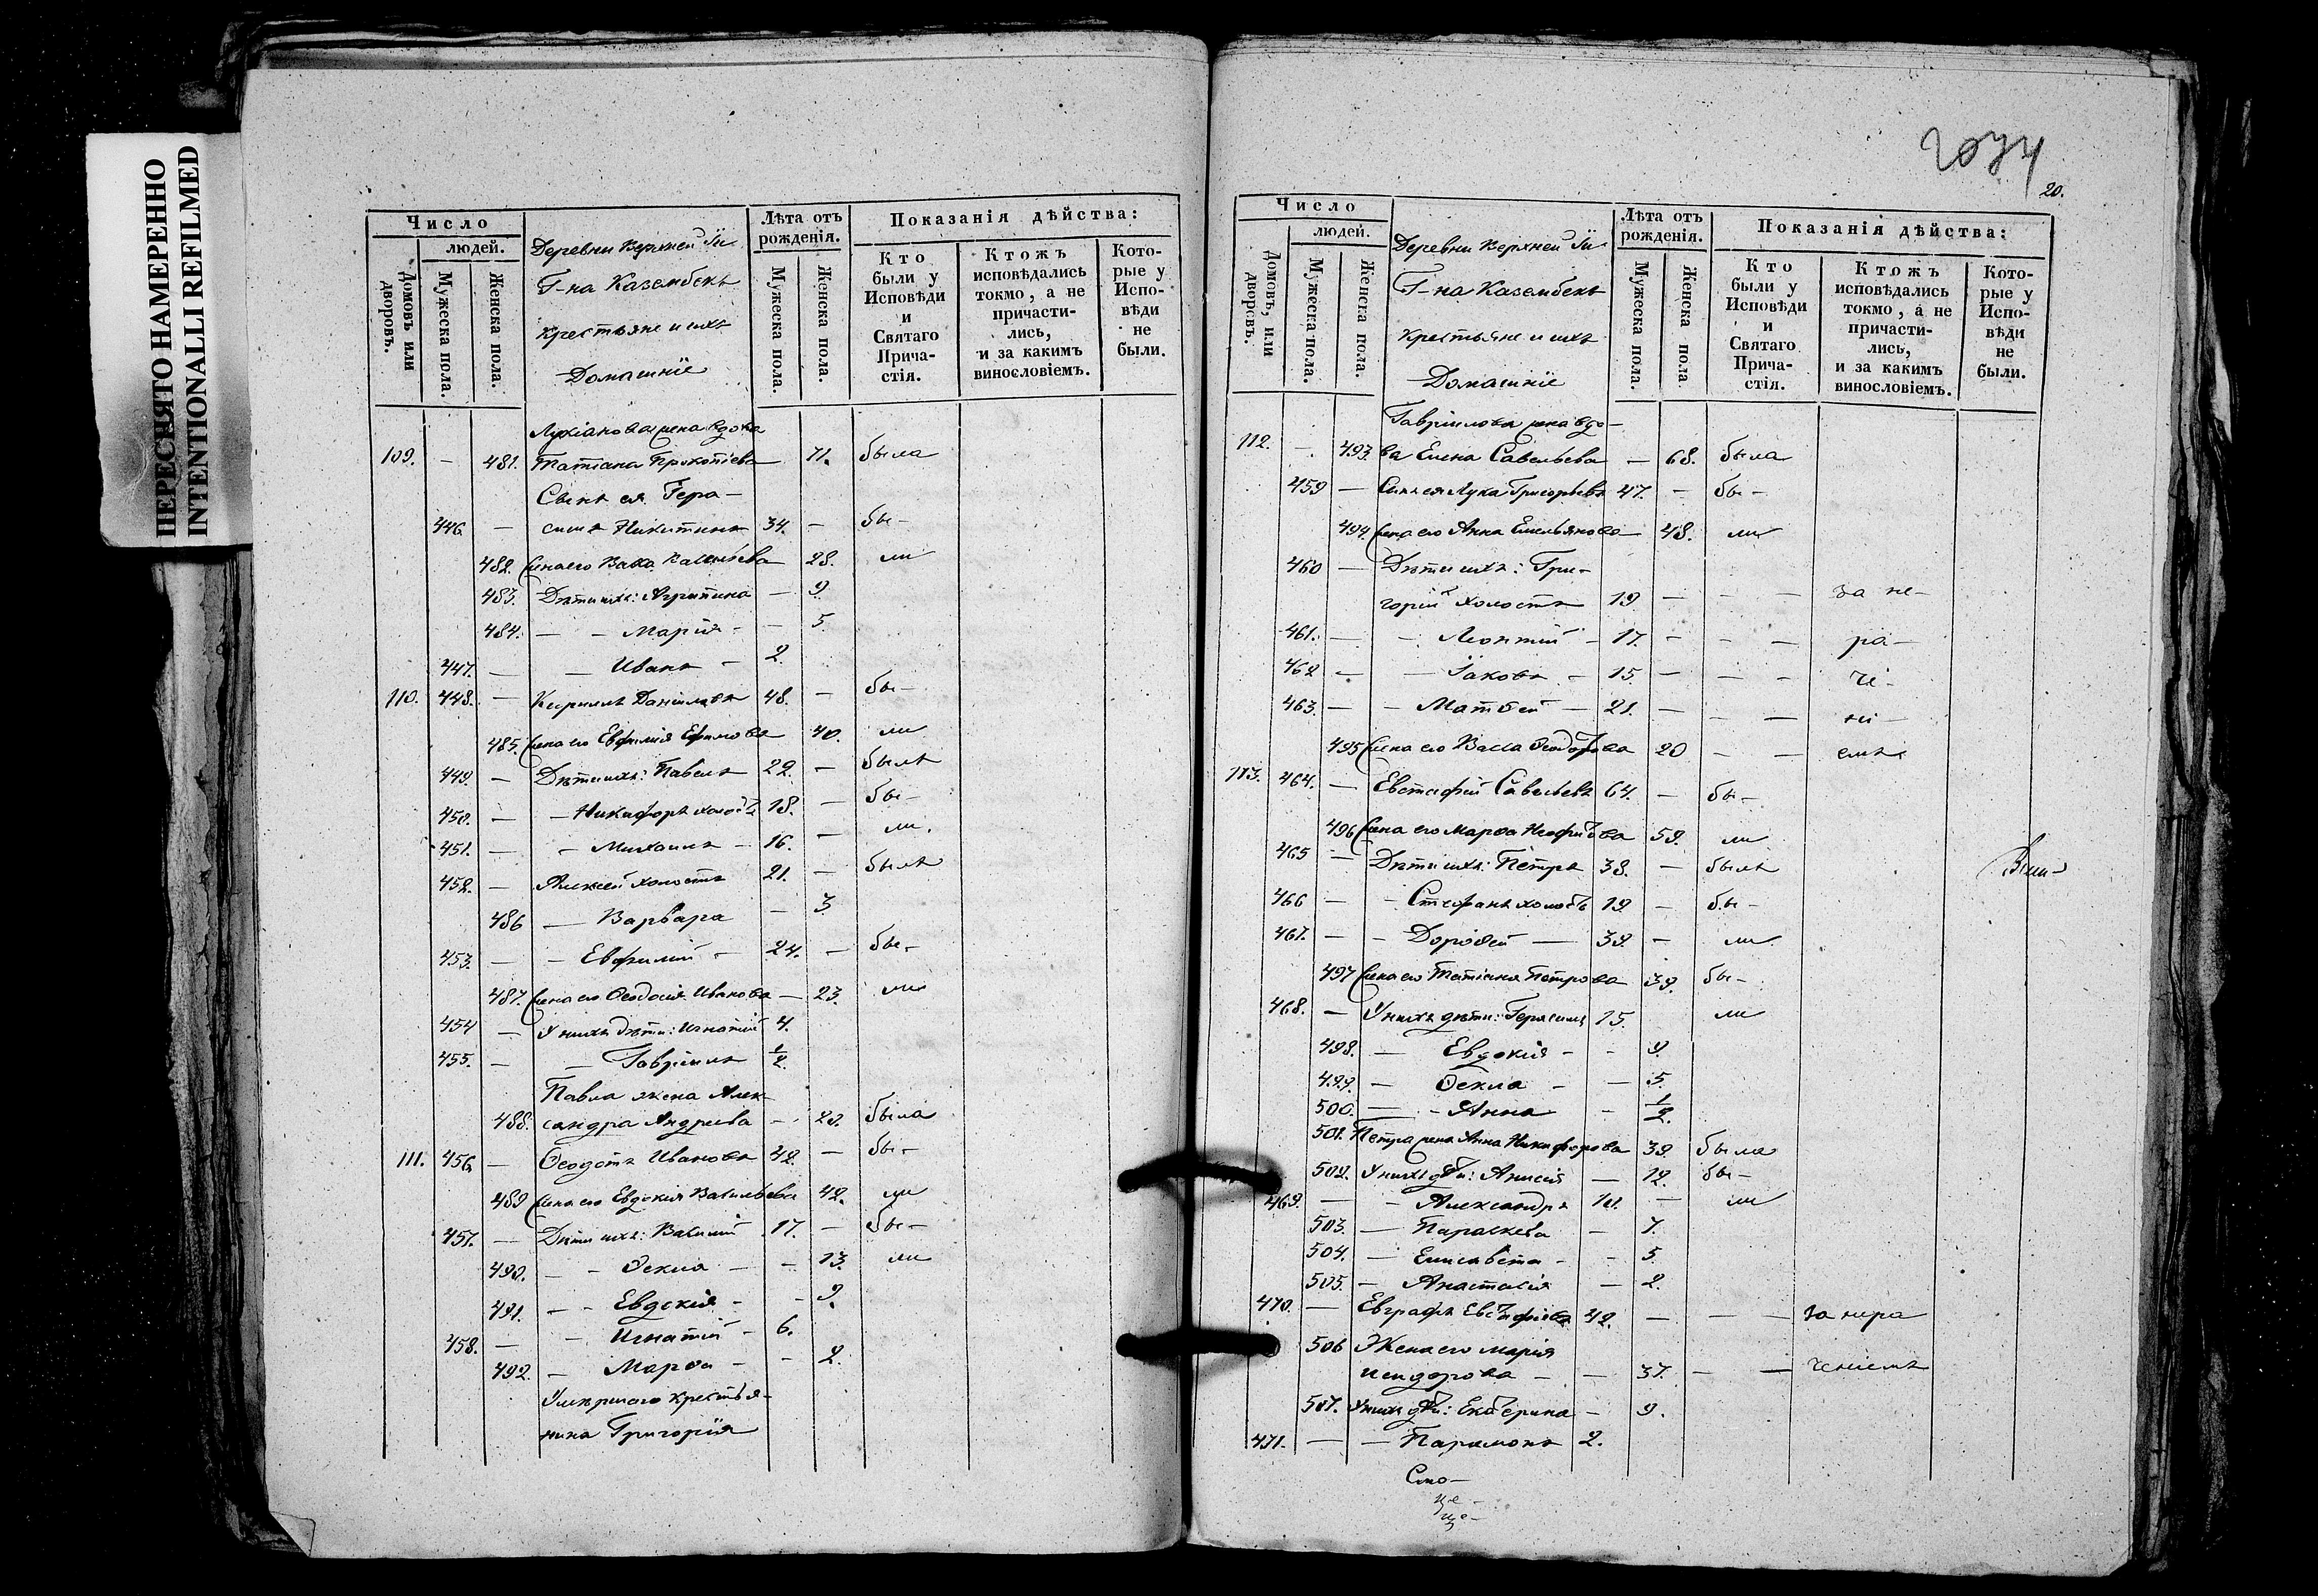 ПЕРЕСНЯТО НАМЕРЕННО
INTENTIONALLI REFILMED
Число
людей.
Домовъ или дворовъ.
Мужеска пола.
Женска пола.
Деревни Верхней
Г-на Казембекъ
крестьяне и ихъ
Домашніе
Лѣта отъ рожденія.
Мужеска пола.
Женска пола.
Показанія дѣйства:
Кто были у Исповѣди и Святаго Прича-стія.
Ктожъ исповѣдались токмо, а не причасти-лись, и за какимъ винословіемъ.
Кото-рые у Испо-вѣди не были.
жена вдова
109. — 481. Татіана Прокопіева — 71. была
Сынъ ея Гера-
446. — симъ Никитинъ 34. — бы-
482. Жена его Васса Васильева 28. ли
483. Дѣти ихъ: Агрипина — 9
484. — — Марія — — 5.
447. — — Иванъ — 2.
110. 448. — Кириллъ Даніиловъ 48. — бы-
485. Жена его Евфимія Ефимова 40. ли
449. — Дѣти ихъ: Павелъ 22. — былъ
450. — — Никифоръ холостъ 18. — бы-
451. — — Михаилъ — 16. — ли.
452. — Алексей холостъ 21. — былъ
486 — Варвара — 3.
453. — — Евфимій — 24. — бы-
487. Жена его Ѳеодосія Иванова — 23. ли
454 — У нихъ дѣти: Игнатій 4.
455. — — Гавріилъ 1/2.
Павла жена Алек-
488. сандра Андреева — 22. была
111. 456 — Ѳеодотъ Ивановъ 42. — бы-
489 Жена его Евдокія Васильева 42. ли
457. — Дѣти ихъ: Василій 17. — бы-
490. — — Ѳекла — — 13. ли
491. — — Евдокія — — 9.
458. — — Игнатій — 6.
492. — Марѳа — — 2.
Умершаго крестья-
нина Григорія
2074
20.
Число
людей.
Домовъ, или дворовъ.
Мужеска пола.
Женска пола.
Деревни Верхней
Г-на Казембекъ
крестьяне и ихъ
Домашніе
Лѣта отъ рожденія.
Мужеска пола.
Женска пола
Показанія дѣйства:
Кто были у Исповѣди и Святаго Прича-стія.
Ктожъ исповѣдались токмо, а не причасти-лись, и за какимъ винословіемъ.
Кото-рые у Испо-вѣди не были.
Гавріилова жена вдо-
112. — 493. ва Елена Савельева — 68. была
459 — Сынъ ея Лука Григорьевъ 47. — бы-
494. Жена его Анна Емельянова — 48. ли
460 — Дѣти ихъ: Гри-
горій холостъ 19 — — — за не-
461. — — Леонтій — 17. — — — ра-
462 — — Іаковъ — 15. — — — че-
463. — — Матѳей — 21. — — — ні-
495 Жена его Васса Ѳеодорова 20 — — емъ
113. 464. — Евстафій Савельевъ 64. — бы-
496 Жена его Марѳа 59. ли
465 — Дѣти ихъ: Петръ 38. — былъ
466 — — Стефанъ холостъ 19. — бы-
467. — — Дороѳей — 39. — ли
497 Жена его Татіана Петрова 39. бы-
468. — У нихъ дѣти: Герасимъ 15. ли
498. — Евдокія — — 9.
499. — Ѳекла — — 5.
500. — — Анна — 1/2.
501. Петра жена Анна Никифорова 39. была
502. У нихъ дѣти: Анисія — 12. бы-
469. — — Александръ 10. — ли
503. — Параскева — 7.
504. — Елисавета — — 5.
505. — Анастасія — 2.
470. — Евграфъ Евстафіевъ 42. — — — за нера
506 Жена его Марія
Исидорова — — 37. — — ченіемъ
507. У нихъ дѣти: Екатерина — 9.
471. — — Парамонъ 2.